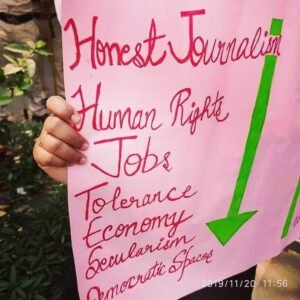 Honest Journalism
Human Rights
Jobs
Tolerance
Economy
Secularism
Democratic Spaces
2019/11/20 11:56